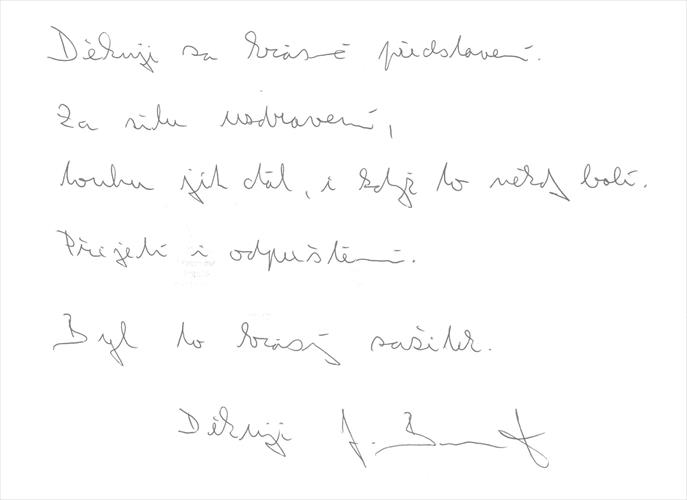 Děkuji za krásné představení.
Za sílu uzdravení,
touhu jít dál, i když to někdy bolí.
Přijetí i odpuštění.
Byl to krásný zážitek.
Děkuji J.